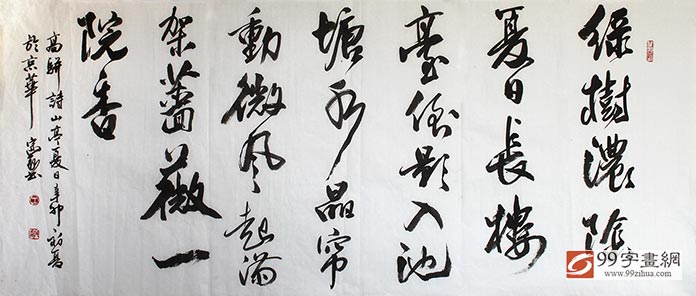 绿樹濃陰
夏日長樓
臺倒影入池
塘水晶帘
動微风起满
架薔薇一
院香
高駢詩山亭夏日辛卯初夏
於京華
99字畫網
www.99zihua.com